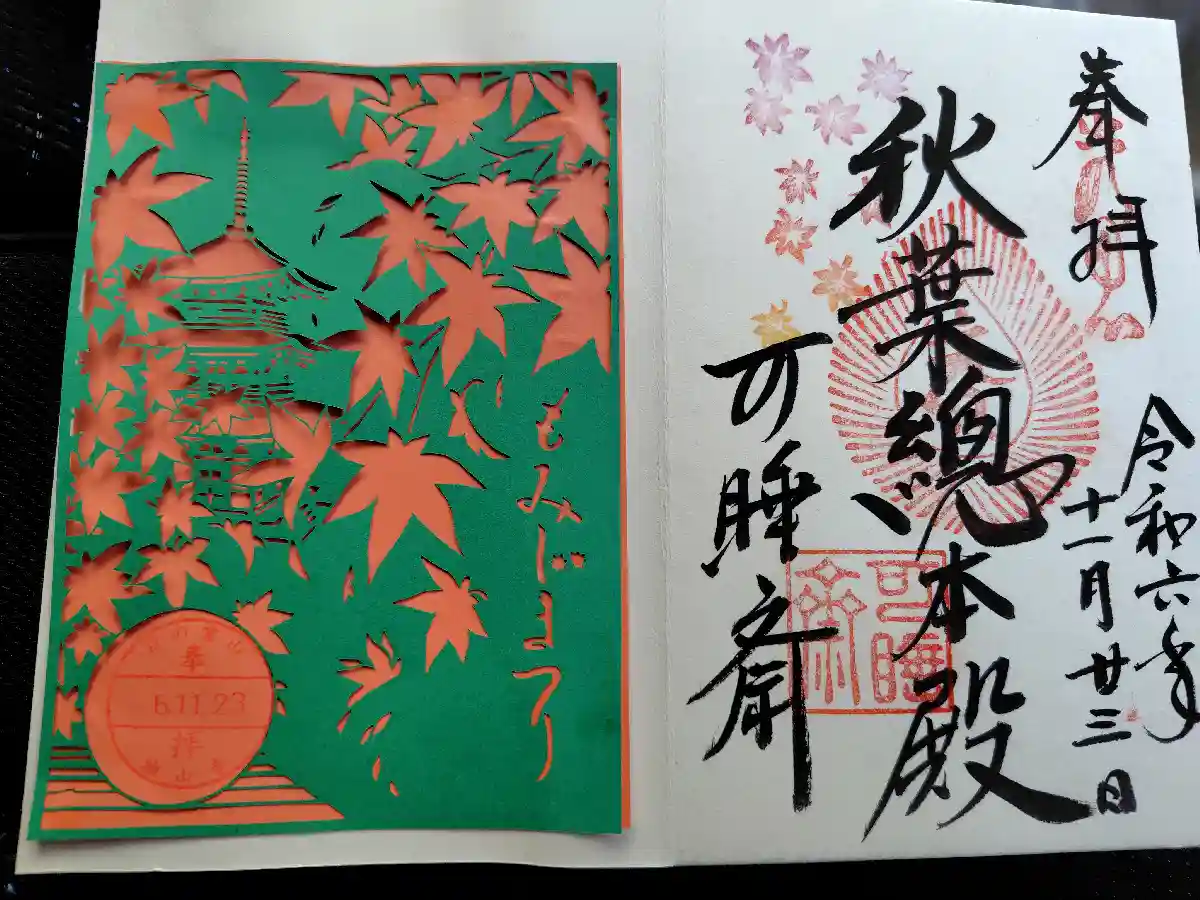 奉拝
令和六年
十一月廿三日
秋葉總本殿
可睡斎
もみじまつり
奉
6.11.23
拝